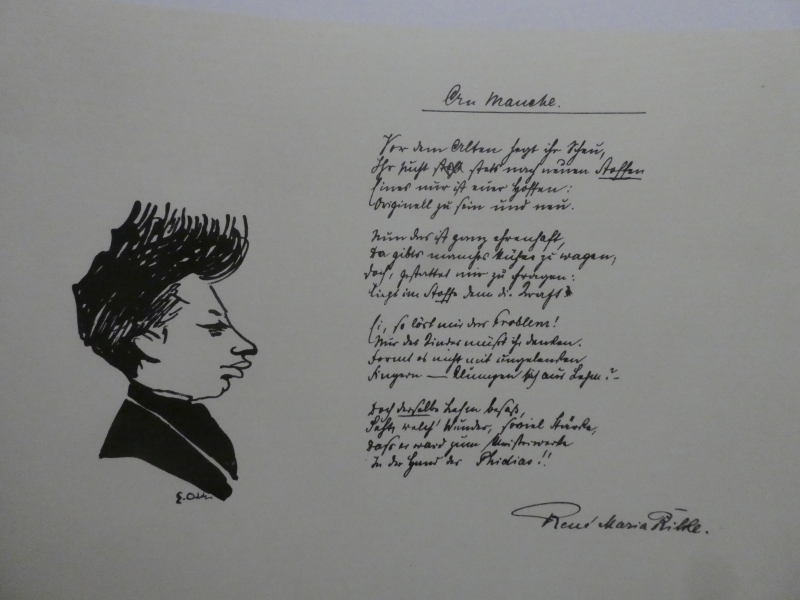 An Manche.
Vor dem Alten hegt ihr Scheu,
Ihr sucht stets nach neuen Stoffen
Eines nur ist euer Hoffen:
Originell zu sein und neu.
Nun das ist ganz ehrenhaft,
Da gibts manches kühne zu wagen,
Doch, gestattet mir zu fragen:
Liegt im Stoffe denn die Kraft?
Ei, so löst mir das Problem!
Nur des Kindes müßt ihr denken.
Formt es nicht mit ungelenken
Fingern — Klumpen sich aus Lehm? –
Doch derselbe Lehm besaß,
Seht, welch' Wunder, soviel Stärke,
dass er ward zum Meisterwerke
In der Hand des Phidias!!
René Maria Rilke.